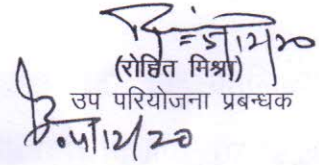 5/12/20
(रोहित मिश्रा)
उप परियोजना प्रबन्धक
04/12/20